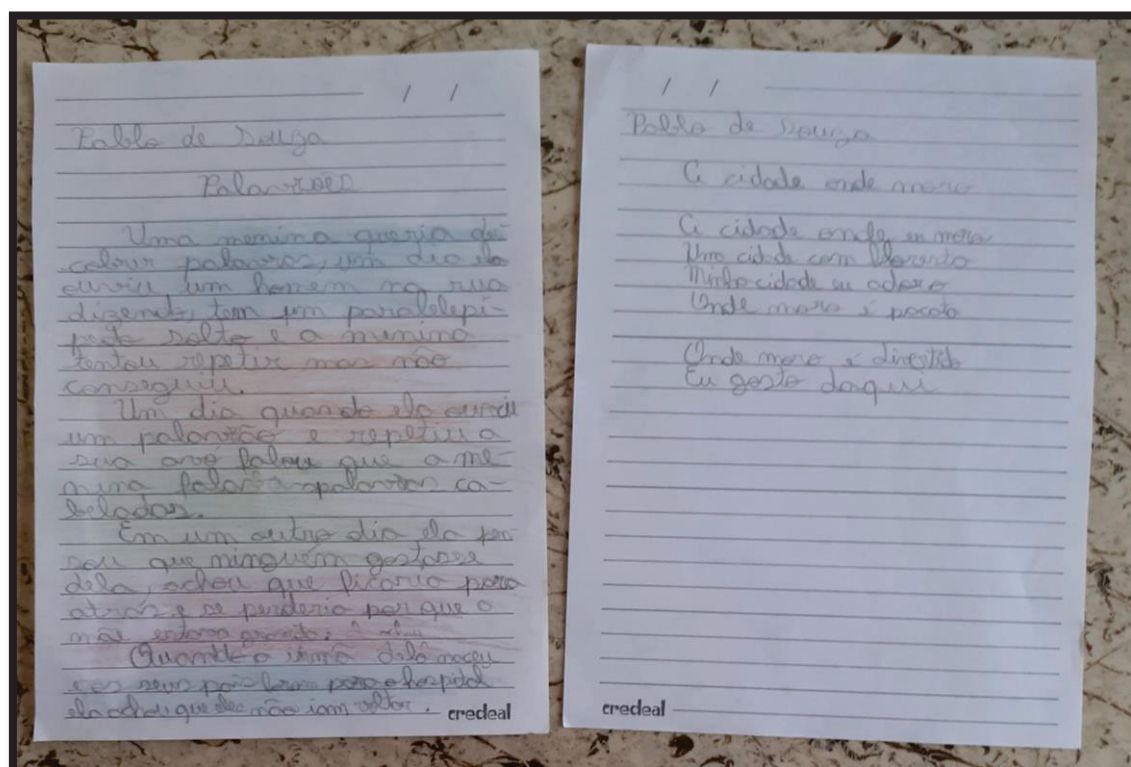 / /
Pablo de Souza
Palavrões
Uma menina queria des
cobrir palavras, um dia ela
ouviu um homem na rua
dizendo, tem um paralelepí-
pedo solto e a menina
tentou repetir mas não
conseguiu.
Um dia quando ela ouviu
um palavrão e repetiu a
sua avo falou que a me-
nina falava palavras ca-
beladas.
Em um outro dia ela pen
sou que ninguém gostasse
dela, achou que ficaria para
atrás e se perderia por que a
mãe estava gravida.
Quando a irmã dela naceu
e os seus pais foram para o hospital
ela achou que eles não iam voltar.
credeal
/ /
Pablo de Souza
A cidade onde moro
A cidade onde eu moro
Uma cidade com
Minha cidade eu adoro
Onde moro é pacato
Onde moro é divertido
Eu gosto daqui
credeal